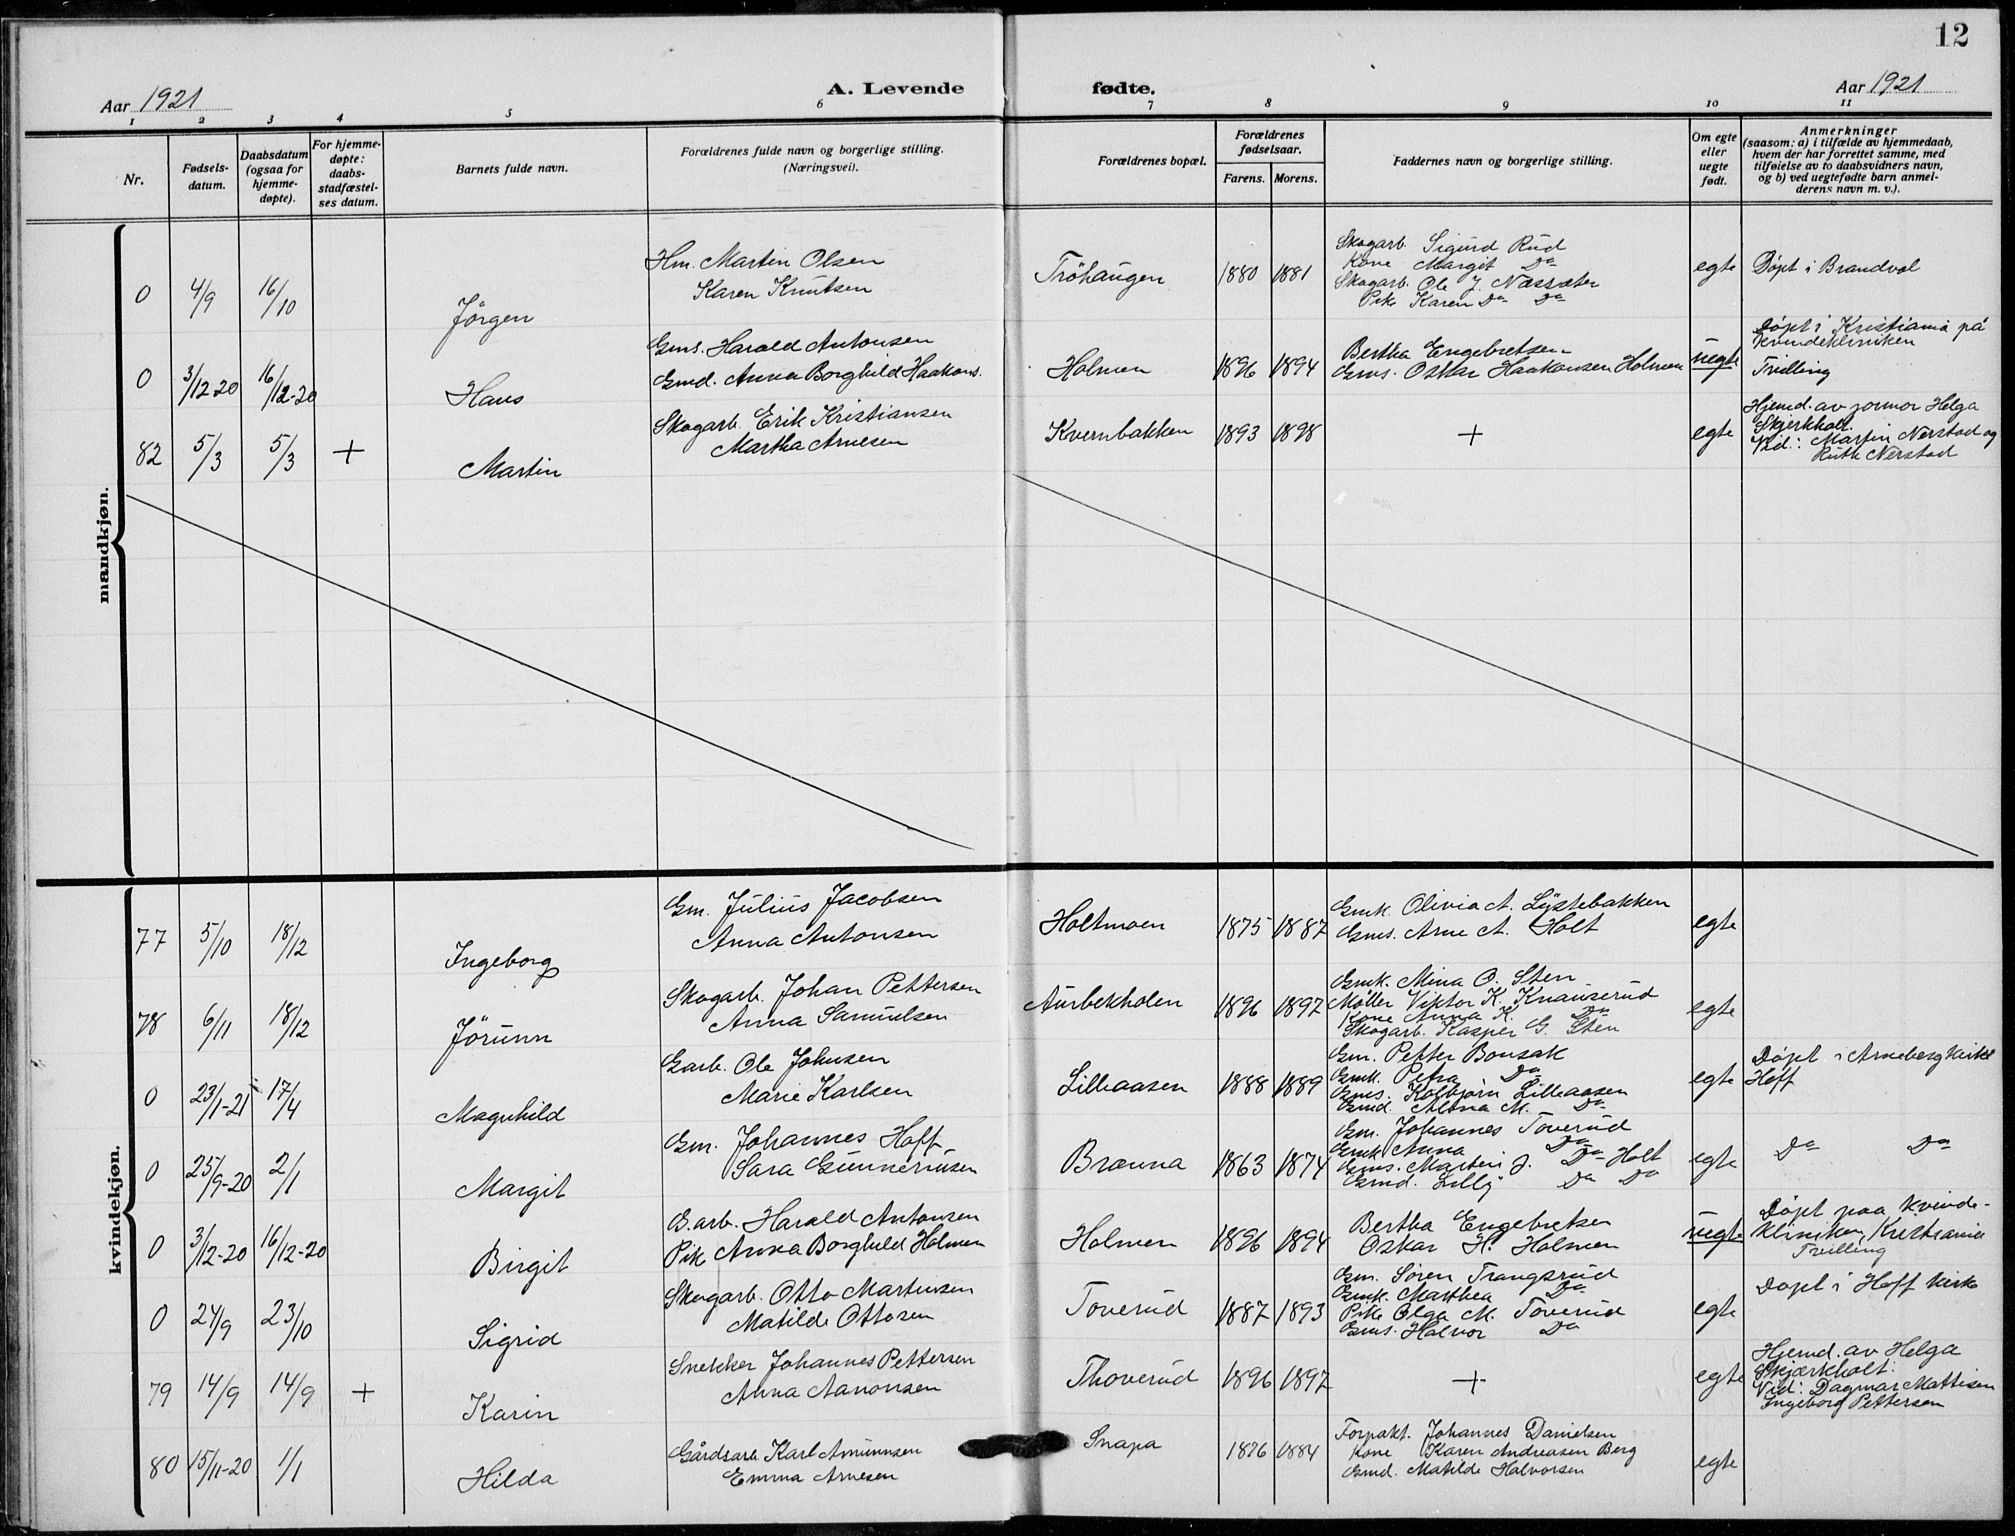 12
Aar 1921 A. Levende fødte. Aar 1921
1 2 3 4 5 6 7 8 9 10 11
Nr.
Fødsels-
datum.
Daabsdatum
(ogsaa for
hjemme-
døpte).
For hjemme-
døpte:
daabs-
stadfæstel-
ses datum.
Barnets fulde navn.
Forældrenes fulde navn og borgerlige stilling.
(Næringsvei).
Forældrenes bopæl.
Forældrenes
fødselsaar.
Farens. Morens.
Faddernes navn og borgerlige stilling.
Om egte
eller
uegte
født.
Anmerkninger
(saasom: a) i tilfælde av hjemmedaab,
hvem der har forrettet samme, med
tilføielse av to daabsvidners navn,
og b) ved uegtefødte barn anmel-
derens navn m. v.).
mandkjøn.
0 4/9 16/10 Jörgen
Hm. Martin Olsen
Karen Knutsen
Tröhaugen 1880 1881
Skogarb. Sigurd Rud
Kone Margit Do
Skogarb. Ole J. Næssæter
Pike Karen Do Do
egte Døpt i Brandval
0 3/12-20 16/12-20 Hans
Gms. Harald Antonsen
Gmd. Anna Borghild Haakons.
Holmen 1896 1894
Bertha Engebretsen
Gms. Oskar Haakonsen Holmen
uegte
Døpt i Kristiania på
Kvindekliniken
Tvilling
82 5/3 5/3 + Martin
Skogarb. Erik Kristiansen
Martha Arnesen
Kvernbakken 1893 1898 + egte
Hjemd. av jormor Helga
Skjerkholt.
Vid.: Martin Nerstad og
Ruth Nerstad
kvindekjøn.
77 5/10 18/12 Ingeborg
Gm. Julius Jacobsen
Anna Antonsen
Holtmoen 1875 1887
Gmk. Olivia A. Lystebakken
Gms. Arne A. Holt
egte
78 6/11 18/12 Jörunn
Skogarb. Johan Pettersen
Anna Samuelsen
Aurbekholen 1896 1897
Gmk. Mina O. Sten
Møller Viktor K. Knauserud
Kone Anna K. Do
Skogarb. Kasper G. Sten
egte
0 23/1-21 17/4 Magnhild
Garb. Ole Johnsen
Marie Karlsen
Lilleaasen 1888 1889
Gm. Petter Bonsak
Gmk. Petra Do
Gms. Kolbjørn Lilleaasen
Gmd. Alma M. Do
egte
Døpt i Arneberg kirke
Hoff
0 25/9-20 2/1 Margit
Gm. Johannes Hoff
Sara Gunneriusen
Brænna 1863 1874
Gm. Johannes Toverud
Gmk. Anna Do
Gms. Martin J. Do - Holt
Gmd. Lilly Do Do
egte Do Do
0 3/12-20 16/12-20 Birgit
G.arb. Harald Antonsen
Pik Anna Borghild Holmen
Holmen 1896 1894
Bertha Engebretsen
Oskar H. Holmen
uegte
Døpt paa Kvinde-
kliniken, Kristiania
Tvilling
0 24/9 23/10 Sigrid
Skogarb. Otto Martinsen
Matilde Ottosen
Toverud 1887 1893
Gm. Søren Trangsrud
Gmk. Marthea Do
Pike Olga M. Toverud
Gms. Halvor Do
egte Døpt i Hoff kirke
79 14/9 14/9 + Karin
Snekker Johannes Pettersen
Anna Aanonsen
Thoverud 1896 1897 + egte
Hjemd. av Helga
Skjærkholt.
Vid: Dagmar Mattisen
Ingeborg Pettersen
80 15/11-20 1/1 Hilda
Gårdsarb. Karl Amunnsen
Emma Arnesen
Snapa 1876 1884
Forpakt. Johannes Danielsen
Kone Karen Andreasen Berg
Gmd. Matilde Halvorsen
egte